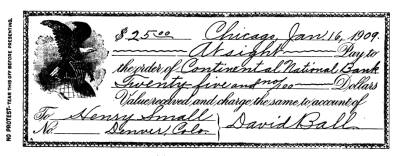 NO PROTEST-TEAR THIS OFF BEFORE PRESENTING.
$25.00 Chicago, Jan 16, 1909.
At sight Pay to
the order of Continental National Bank
Twenty-five and no/100 Dollars
Value received, and charge the same, to account of
To Henry Small } David Ball
No. Denver, Colo.